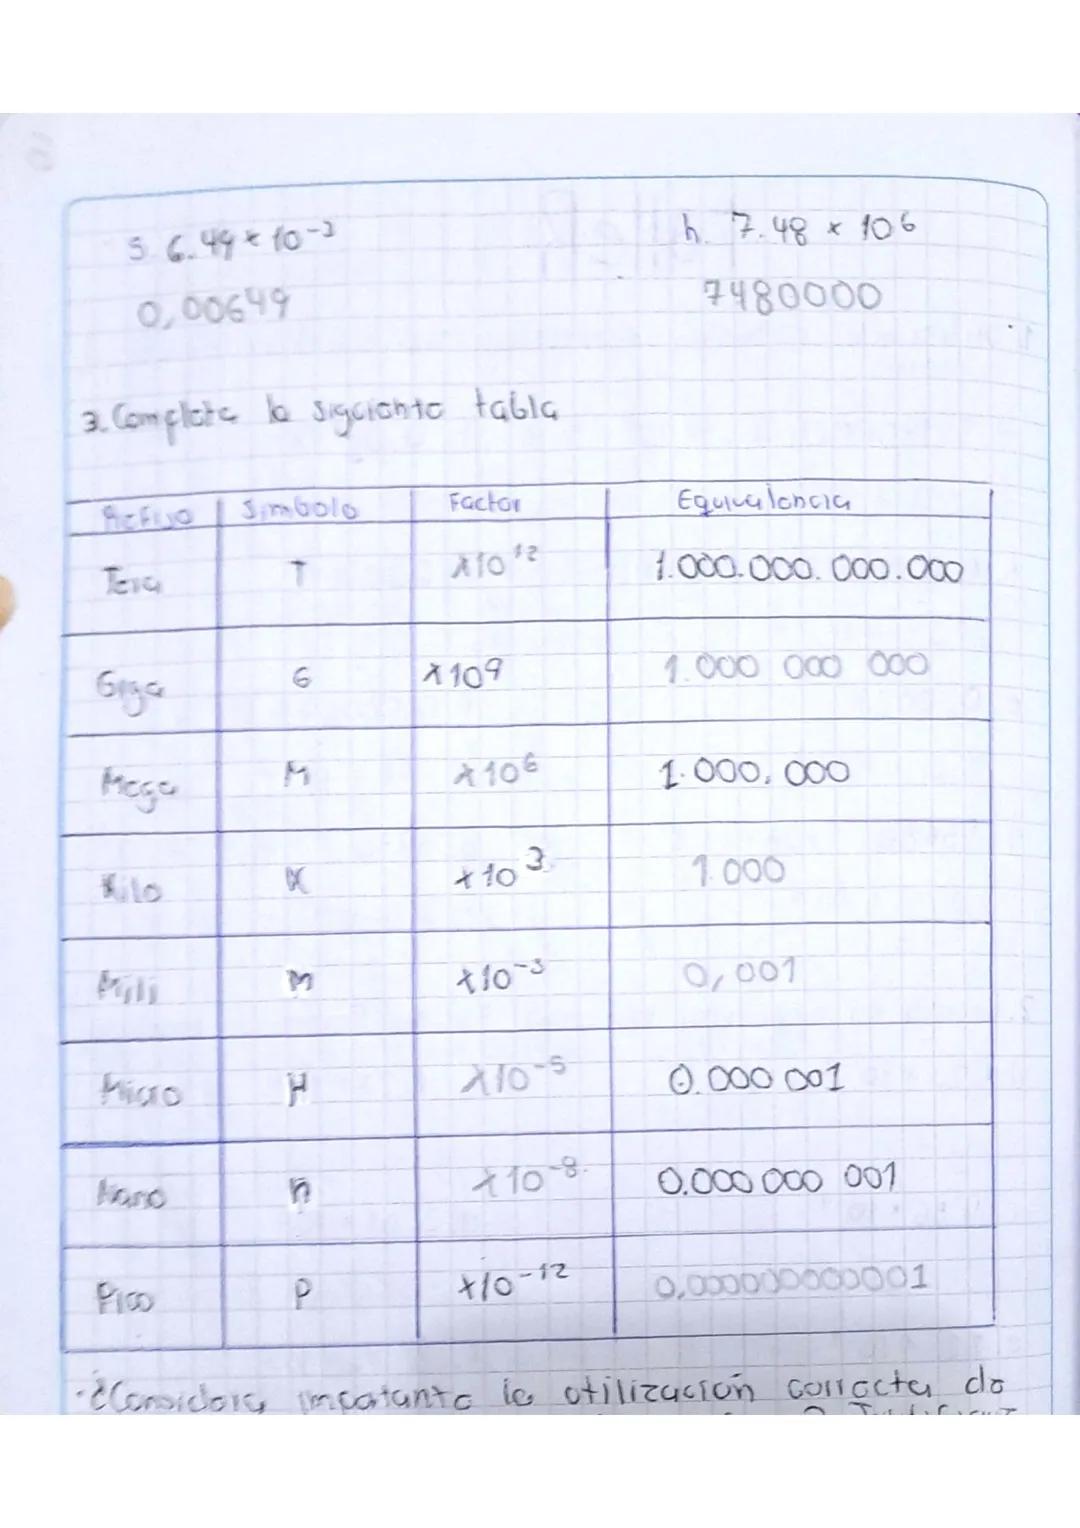 5. 6.49 × 10-3
h. 7.48 × 106
0,00649
7480000
3. Complete la siguiente tabla
Prefijo Simbolo Factor Equivalencia
Tera T ×10¹² 1.000.000.000.000
Giga G ×109 1.000 000 000
Mega M ×106 1.000.000
Kilo K ×10³ 1.000
Mili M ×10-3 0,001
Micro μ ×10-5 0.000 001
Nano n ×10-8 0.000 000 001
Pico P ×10-12 0,000000000001
·¿Considera importante la utilización correcta de